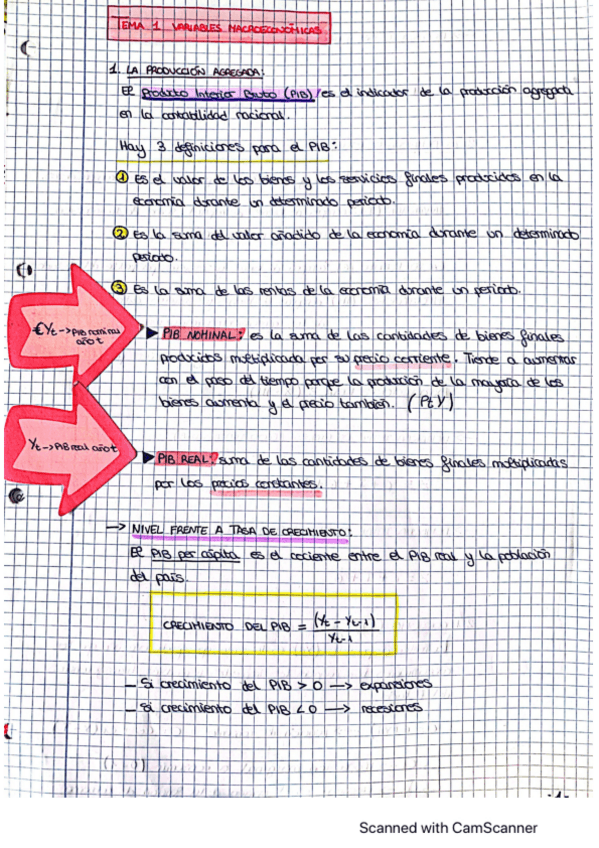 TEMA 1 VARIABLES MACROECONÓMICAS
1. LA PRODUCCIÓN AGREGADA:
El Producto Interior Bruto (PIB) es el indicador de la producción agregada
en la contabilidad nacional.
Hay 3 definiciones para el PIB:
1 Es el valor de los bienes y los servicios finales producidos en la
economía durante un determinado periodo.
2 Es la suma del valor añadido de la economía durante un determinado
periodo.
3 Es la suma de las rentas de la economía durante un periodo.
€Yt -> PIB nominal
año t
PIB NOMINAL: es la suma de las cantidades de bienes finales
producidos multiplicada por su precio corriente. Tiende a aumentar
con el paso del tiempo porque la producción de la mayoría de los
bienes aumenta y el precio también. (Pt Y)
Yt -> PIB real año t
PIB REAL: suma de las cantidades de bienes finales multiplicadas
por los precios constantes.
-> NIVEL FRENTE A TASA DE CRECIMIENTO:
El PIB per cápita es el cociente entre el PIB real y la población
del país.
CRECIMIENTO DEL PIB = (Yt - Yt-1) / Yt-1
- Si crecimiento del PIB > 0 -> expansiones
- Si crecimiento del PIB < 0 -> recesiones
-1-
Scanned with CamScanner